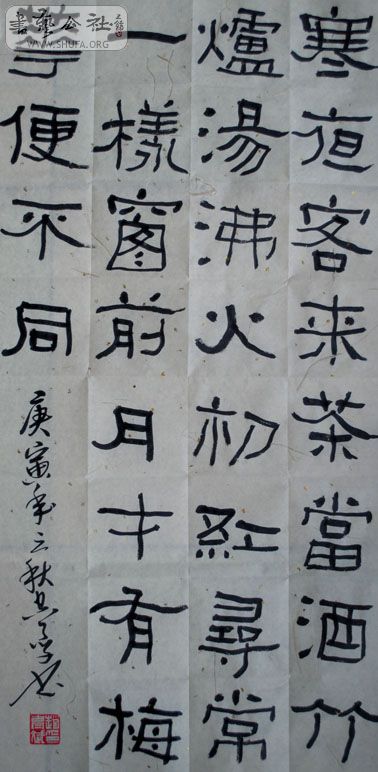 書藝公社
WWW.SHUFA.ORG
寒夜客来茶當酒竹
爐湯沸火初紅尋常
一樣窗前月才有梅
便不同
庚寅年秋